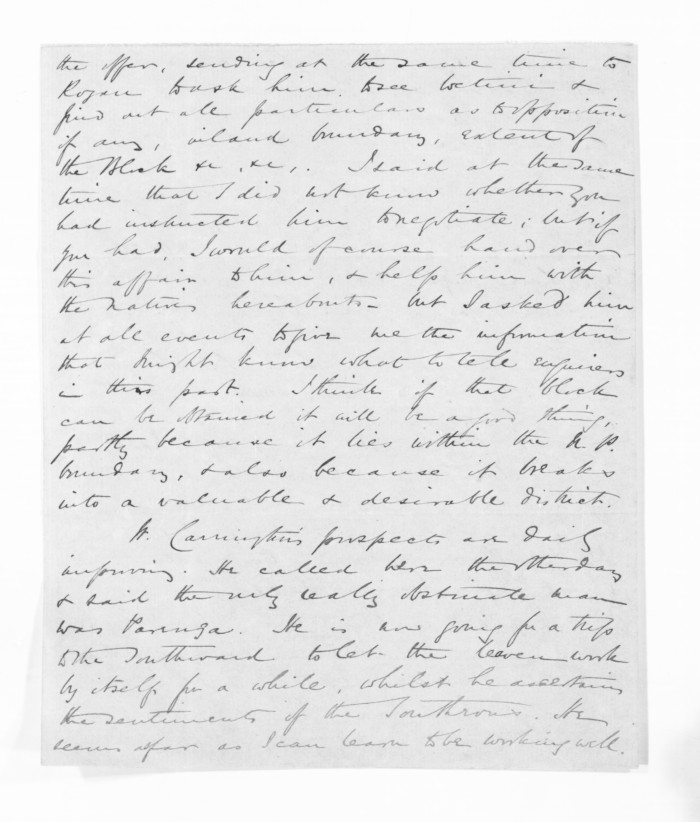 the offer, sending at the same time to
Rogan to ask him to see &
find out all particulars as to opposition
if any, inland boundary, extent of
the Block &c, &c,. I said at the same
time that I did not know whether you
had instructed him to negotiate; but if
you had, I would of course hand over
this affair to him, & help him with
the natives hereabouts - but I asked him
at all events to give me the information
that I might know what to tell enquirers
in this part. I think if that block
can be obtained it will be a good thing,
partly because it lies within the N. P.
boundary, & also because it breaks
into a valuable & desirable district.
W. Carrington's prospects are daily
improving. He called here the other day
& said the only really obstinate man
was Parenga. He is now going for a trip
to the Southward to let the leaven work
by itself for a while, whilst he ascertains
the sentiments of the Southrons. He
seems as far as I can learn to be working well.